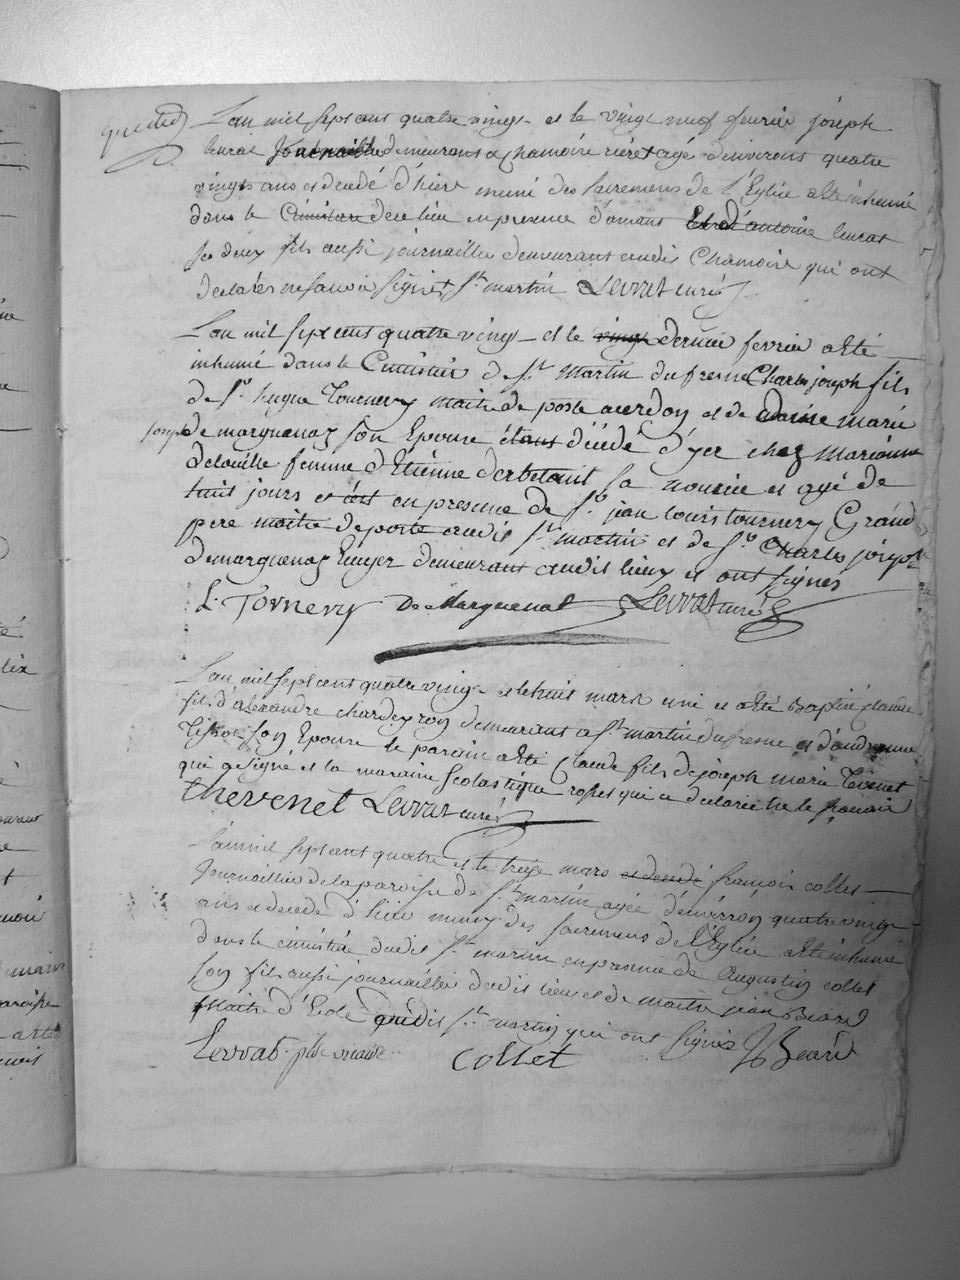 L'an mil sept cent quatre vingt et le vingt neuf fevrier joseph
demeurant a Chamoire agé denvirons quatre
vingts ans et decedé d'hier muni des sacremens de l'Eglise a eté inhumé
dans le Cimitier de ce lieu en presence d'amant et d'antoine
ses deux fils aussi journaillier demeurant audit Chamoire qui ont
declarés ne savoir signer St martin Levrat curé
L'an mil sept cent quatre vingt et le vingt dernier fevrier a eté
inhumé dans le Cimitier de St Martin du fresne Charles joseph fils
de Sr hugue Tournery maitre de poste a cerdon et de marie
joseph demarguenaz son Epouse étant décédé d'yer chez marianne
femme d'Etienne sa nourice et agé de
huit jours et en presence de Sr jean louis tournery Grand
pere maitre de poste audit St martin et de Sr Charles joseph
demarguenaz Ecuyer demeurant audit lieux et ont signés
L. Tornery De Marguenat Levrat curé
L'an mil sept cent quatre vingt et le huit mars né et a eté Baptisé claude
fils d'alexandre chardeyron demeurant a St martin du fresne et
son Epouse le parain a eté Claude fils de joseph marie Tevenet
qui a signé et la maraine Scolastique qui a declarée ne le pouvoir
thevenet Levrat curé
L'an mil sept cent quatre et le treize mars et decedé françois collet
journaillier de la paroisse de St martin agée denvirron quatre vingt
ans et decede d'hier muny des sacremens de l'Eglise a eté inhumé
dans le cimitiée dudit St martin en presence de Augustin collet
son fils aussi journaillié dudit lieu et de maitre jean Beard
Maitre d'Ecole audit St martin qui ont signés
Levrat ptre vicaire Collet J Beard